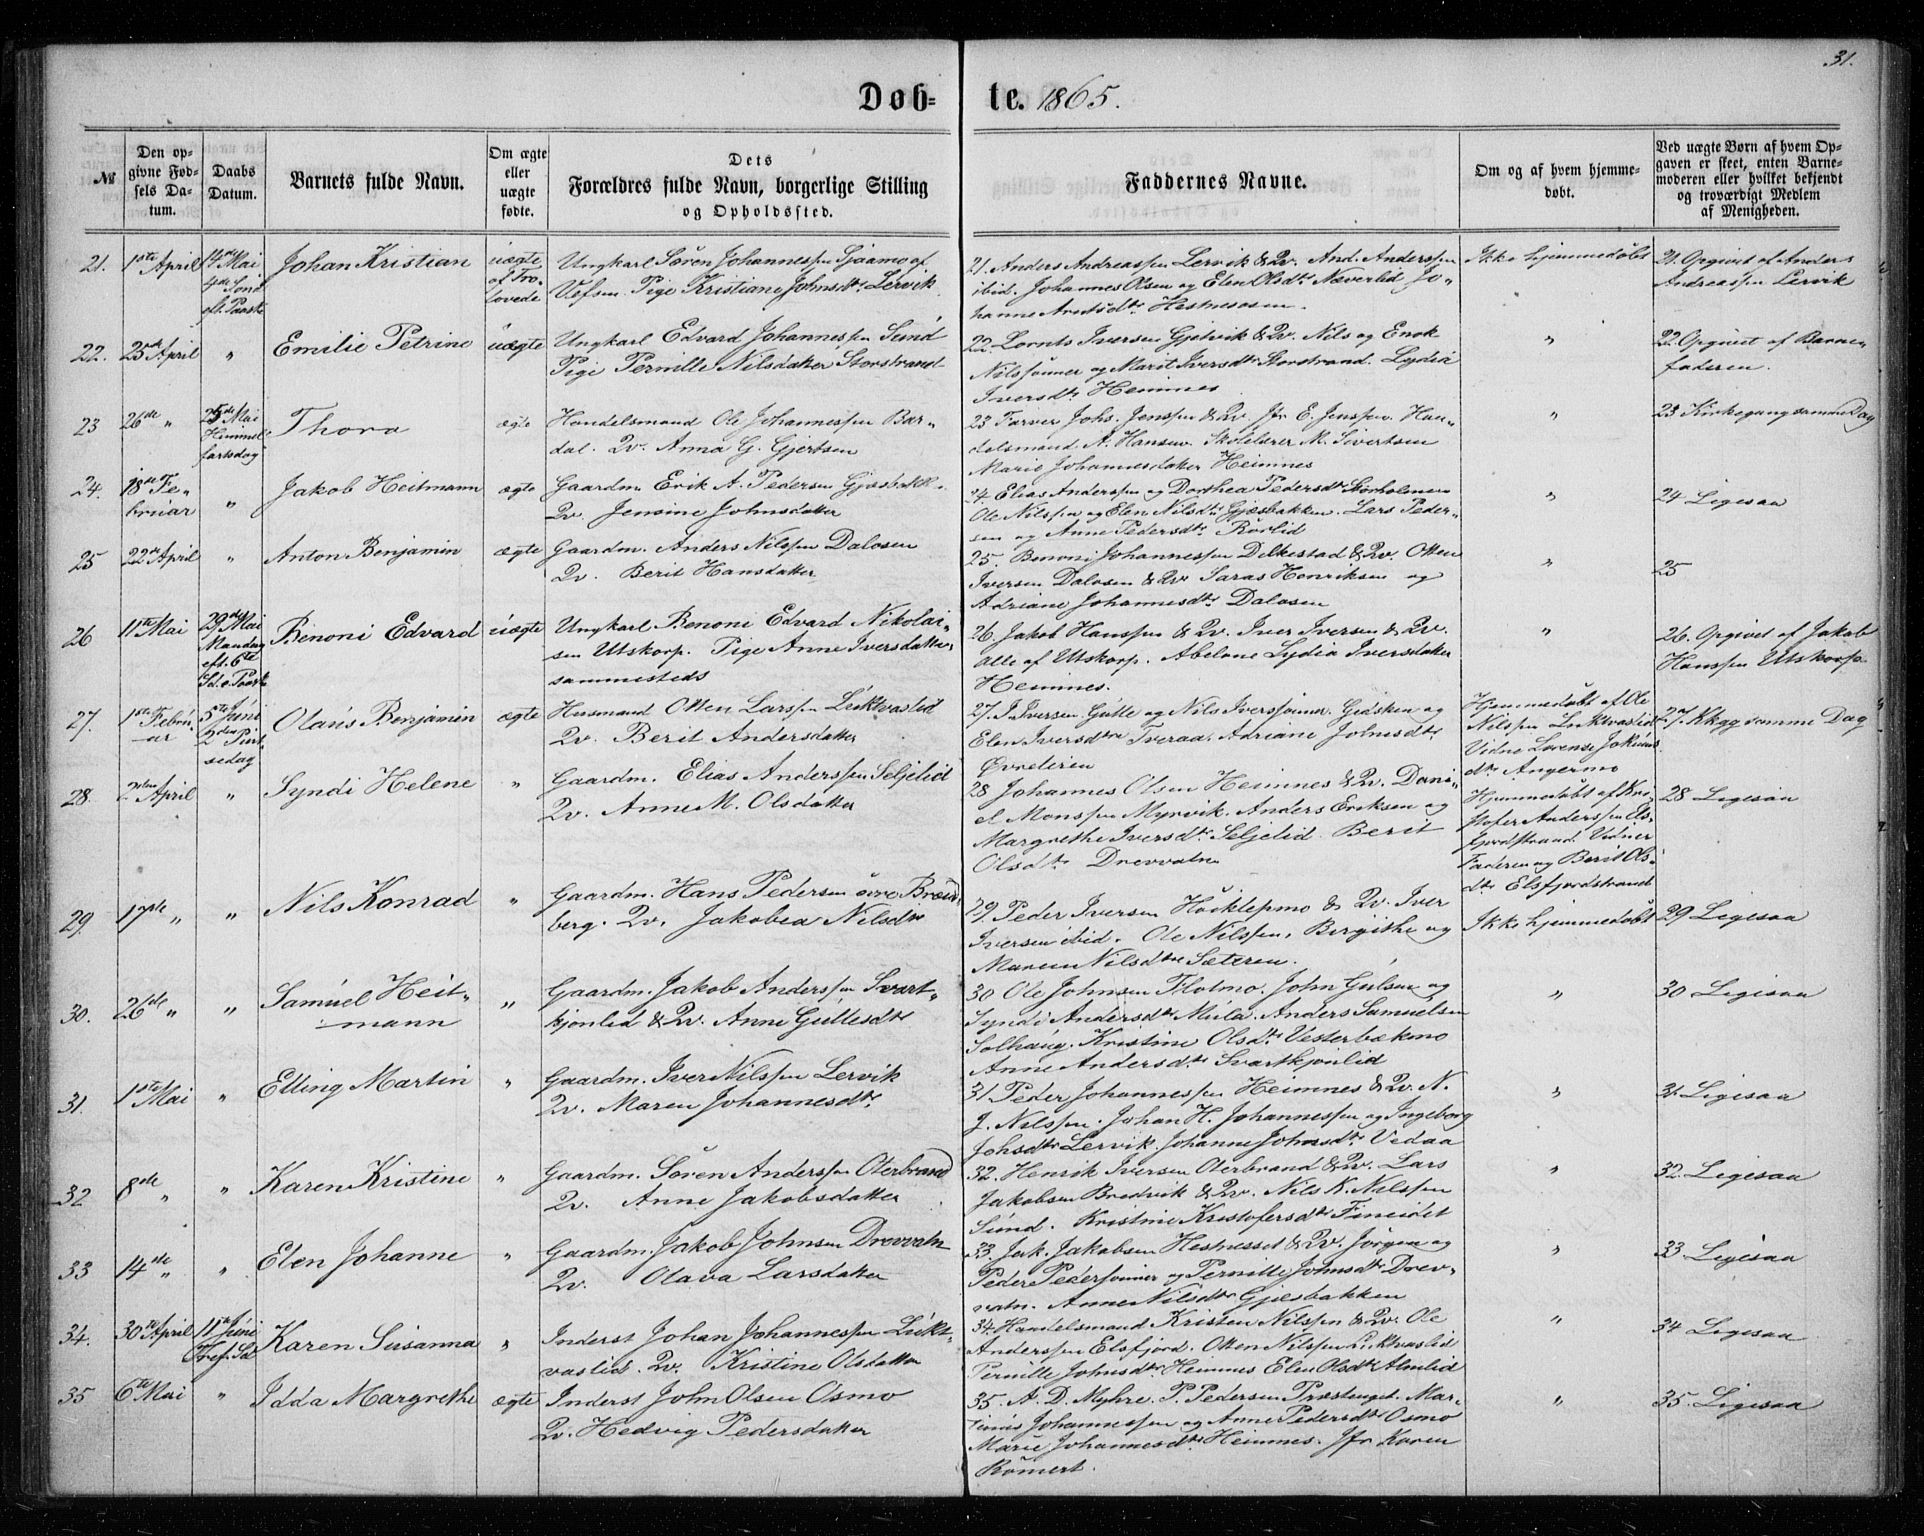 31.
Døb= te. 1865.
№
Den op-
givne Fød-
sels Da-
tum.
Daabs
Datum.
Barnets fulde Navn.
Om ægte
eller
uægte
fødte.
Dets
Forældres fulde Navn, borgerlige Stilling
og Opholdssted.
Faddernes Navne.
Om og af hvem hjemme-
døbt.
Ved uægte Børn af hvem Op-
gaven er skeet, enten Barne-
moderen eller hvilket bekjendt
og troværdigt Medlem
af Menigheden.
21. 1ste April 14de Mai
4de Sønd
eft. Paaske
Johan Kristian
uægte
af Tro-
lovede
Ungkarl Søren Johannessen af
Vefsen. Pige Kristiane Johnsdtr Lervik
21. Anders Andreassen Lervik & Qv. And. Anderssen
ibid. Johannes Olsen og Elen Olsdtr Næverlid Jo-
hanne Arntsdtr Hestnesosen
Ikke hjemmedøbt
21. Opgivet af Anders
Andreassen Lervik
22. 23de April " Emilie Petrine uægte
Ungkarl Edvard Johannessen Sund
Pige Pernille Nilsdatter Storstrand
22. Lornts Iversen Gjelvik & Qv. Nils og Enok
Nilssønner og Marit Iversdtr Storstrand. Lydia
Iversdtr Hemnes
"
22. Opgivet af Barne-
faderen.
23 26de " 25de Mai
Himmel
fartsdag
Thora ægte
Handelsmand Ole Johannessen Bar-
dal. Qv. Anna G. Gjertsen
23 Farver Johs. Jenssen & Qv. Jfr E. Jenssen. Han-
delsmand A. Hansen. Skolelærer M. Sivertsen
Marie Johannesdatter Hemnes
"
23 Kirkegang samme Dag
24. 18de Fe-
bruar " Jakob Heitmann ægte
Gaardm. Erik A. Pedersen Gjesbakk.
Qv. Jensine Johnsdatter
24 Elias Anderssen og Dorthea Pedersdtr Storholmen
Ole Nilssen og Elen Nilsdtr Gjesbakken. Lars Peder-
sen og Anne Pedersdtr Rørlid
"
24 Ligesaa
25 22de April " Anton Benjamin ægte
Gaardm. Anders Nilssen Dalosen
Qv. Berit Hansdatter
25. Benoni Johannessen Dilkestad & Qv. Otten
Iversen Dalosen & Qv. Saras Henriksen og
Adriane Johannesdtr Dalosen
"
25
26 11te Mai 29de Mai
Mandag
eft. 6te
Sd. e. Paaske
Benoni Edvard uægte
Ungkarl Benoni Edvard Nikolai-
sen Utskorp. Pige Anne Iversdatter
sammesteds
26. Jakob Hanssen & Qv. Iver Iversen & Qv.
alle af Utskorp. Abelone Lydia Iversdatter
Hemnes.
"
26. Opgivet af Jakob
Hanssen Utskorp
27. 1ste Febru-
ar
5te Juni
2den Pint-
sedag
Olaus Benjamin ægte
Husmand Otten Larssen Luktvaslid
Qv. Berit Andersdatter
27. I. Iversen Gutte og Nils Iverssønner. Gidsken og
Elen Iversdtre Tveraa. Adriane Johnsdtr
Øvreleren
Hjemmedøbt af Ole
Nilssen Luktvaslid
Vidne Lorense Jokums
dtr Angermo
27 Kkgg samme Dag
28. 2den April " Syndi Helene "
Gaardm. Elias Anderssen Seljelid
Qv. Anne M. Olsdatter
28 Johannes Olsen Hemnes & Qv. Dani-
el Monssen Myrvik. Anders Eriksen og
Margrethe Iversdtr Seljelid. Berit
Olsdtr Drevvatn
Hjemmedøbt af Kri-
stofer Anderssen Els-
fjordstrand. Vidner
Faderen og Berit Ols-
dtr Elsfjordstrand
28 Ligesaa
29. 17de " " Nils Konrad "
Gaardm. Hans Pedersen øvre
berg. Qv. Jakobea Nilsdtr
29. Peder Iversen & Qv. Iver
Iversen ibid. Ole Nilssen. Birgithe og
Maren Nilsdtre Sæteren.
Ikke hjemmedøbt
29 Ligesaa
30. 26de " " Samuel Heit-
mann "
Gaardm. Jakob Anderssen Svart-
kjønlid & Qv. Anne Guttesdtr
30 Ole Johnsen Flotmo. John Gulsen og
Syndi Andersdtr Mula. Anders Samuelsen
Solhaug. Kristine Olsdtr Vesterbækmo
Anne Andersdtr Svartkjønlid
"
30 Ligesaa
31. 1ste Mai " Elling Martin "
Gaardm. Iver Nilssen Lervik
Qv. Maren Johannesdtr
31 Peder Johannessen Hemnes & Qv. N.
J. Nilssen. Johan H. Johannessen og Ingeborg
Johsdtr Lervik. Johanne Johnsdtr Vedaa
"
31 Ligesaa
32 8de " " Karen Kristine "
Gaardm. Søren Anderssen Oterbrand
Qv. Anne Jakobsdatter
32. Henrik Iversen Oterbrand & Qv. Lars
Jakobsen Bredvik & Qv. Nils K. Nilssen
Sund. Kristine Kristofersdtr Fineidet
"
32. Ligesaa
33 14de " " Elen Johanne "
Gaardm. Jakob Johnsen Drevvatn
Qv. Olava Larsdatter
33. Jak. Jakobsen Hestneset & Qv. Jørgen og
Peder Pederssønner og Pernille Johnsdtr Drev-
vatn. Anne Nilsdtr Gjesbakken
"
33 Ligesaa
34. 30te April 11te Juni
Tref. Sd
Karen Susanna "
Inderst Johan Johannessen Lukt-
vaslid. Qv. Kristine Olsdatter
34. Handelsmand Kristen Nilssen & Qv. Ole
Anderssen Elsfjord. Otten Nilssen Luktvaslid
Pernille Johnsdtr Hemnes Elen Olsdtr Almlid
"
34 Ligesaa
35 6te Mai " Idda Margrethe ægte
Inderst John Olsen Osmo
Qv. Hedvig Pedersdatter
35. A. D. Myhre. P. Pedersen Præstenget. Mar-
tinus Johannessen og Anne Pedersdtr Osmo
Marie Johannesdtr Hemnes. Jfr Karen
Rømert.
"
35. Ligesaa